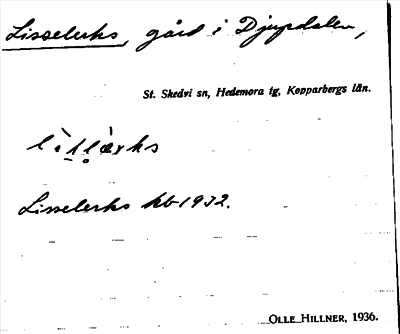 Lisselerks, gård i Djupdalen,
St. Skedvi sn, Hedemora tg, Kopparbergs län.
Lisselerks kb 1932.
OLLE HILLNER, 1936.